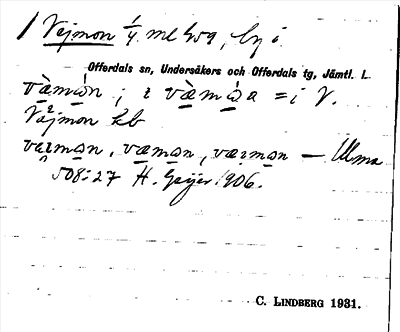 Vejmon 1/4 ml hsg, by i
Offerdals sn, Undersåkers och Offerdals tg, Jämtl. L.
væ̀mòn ; i væ̀mòa = i V.
Vejmon kb
væimon, væmon, væzmon — Ulma
508:27 H. Geijer 1906.
C. LINDBERG 1931.